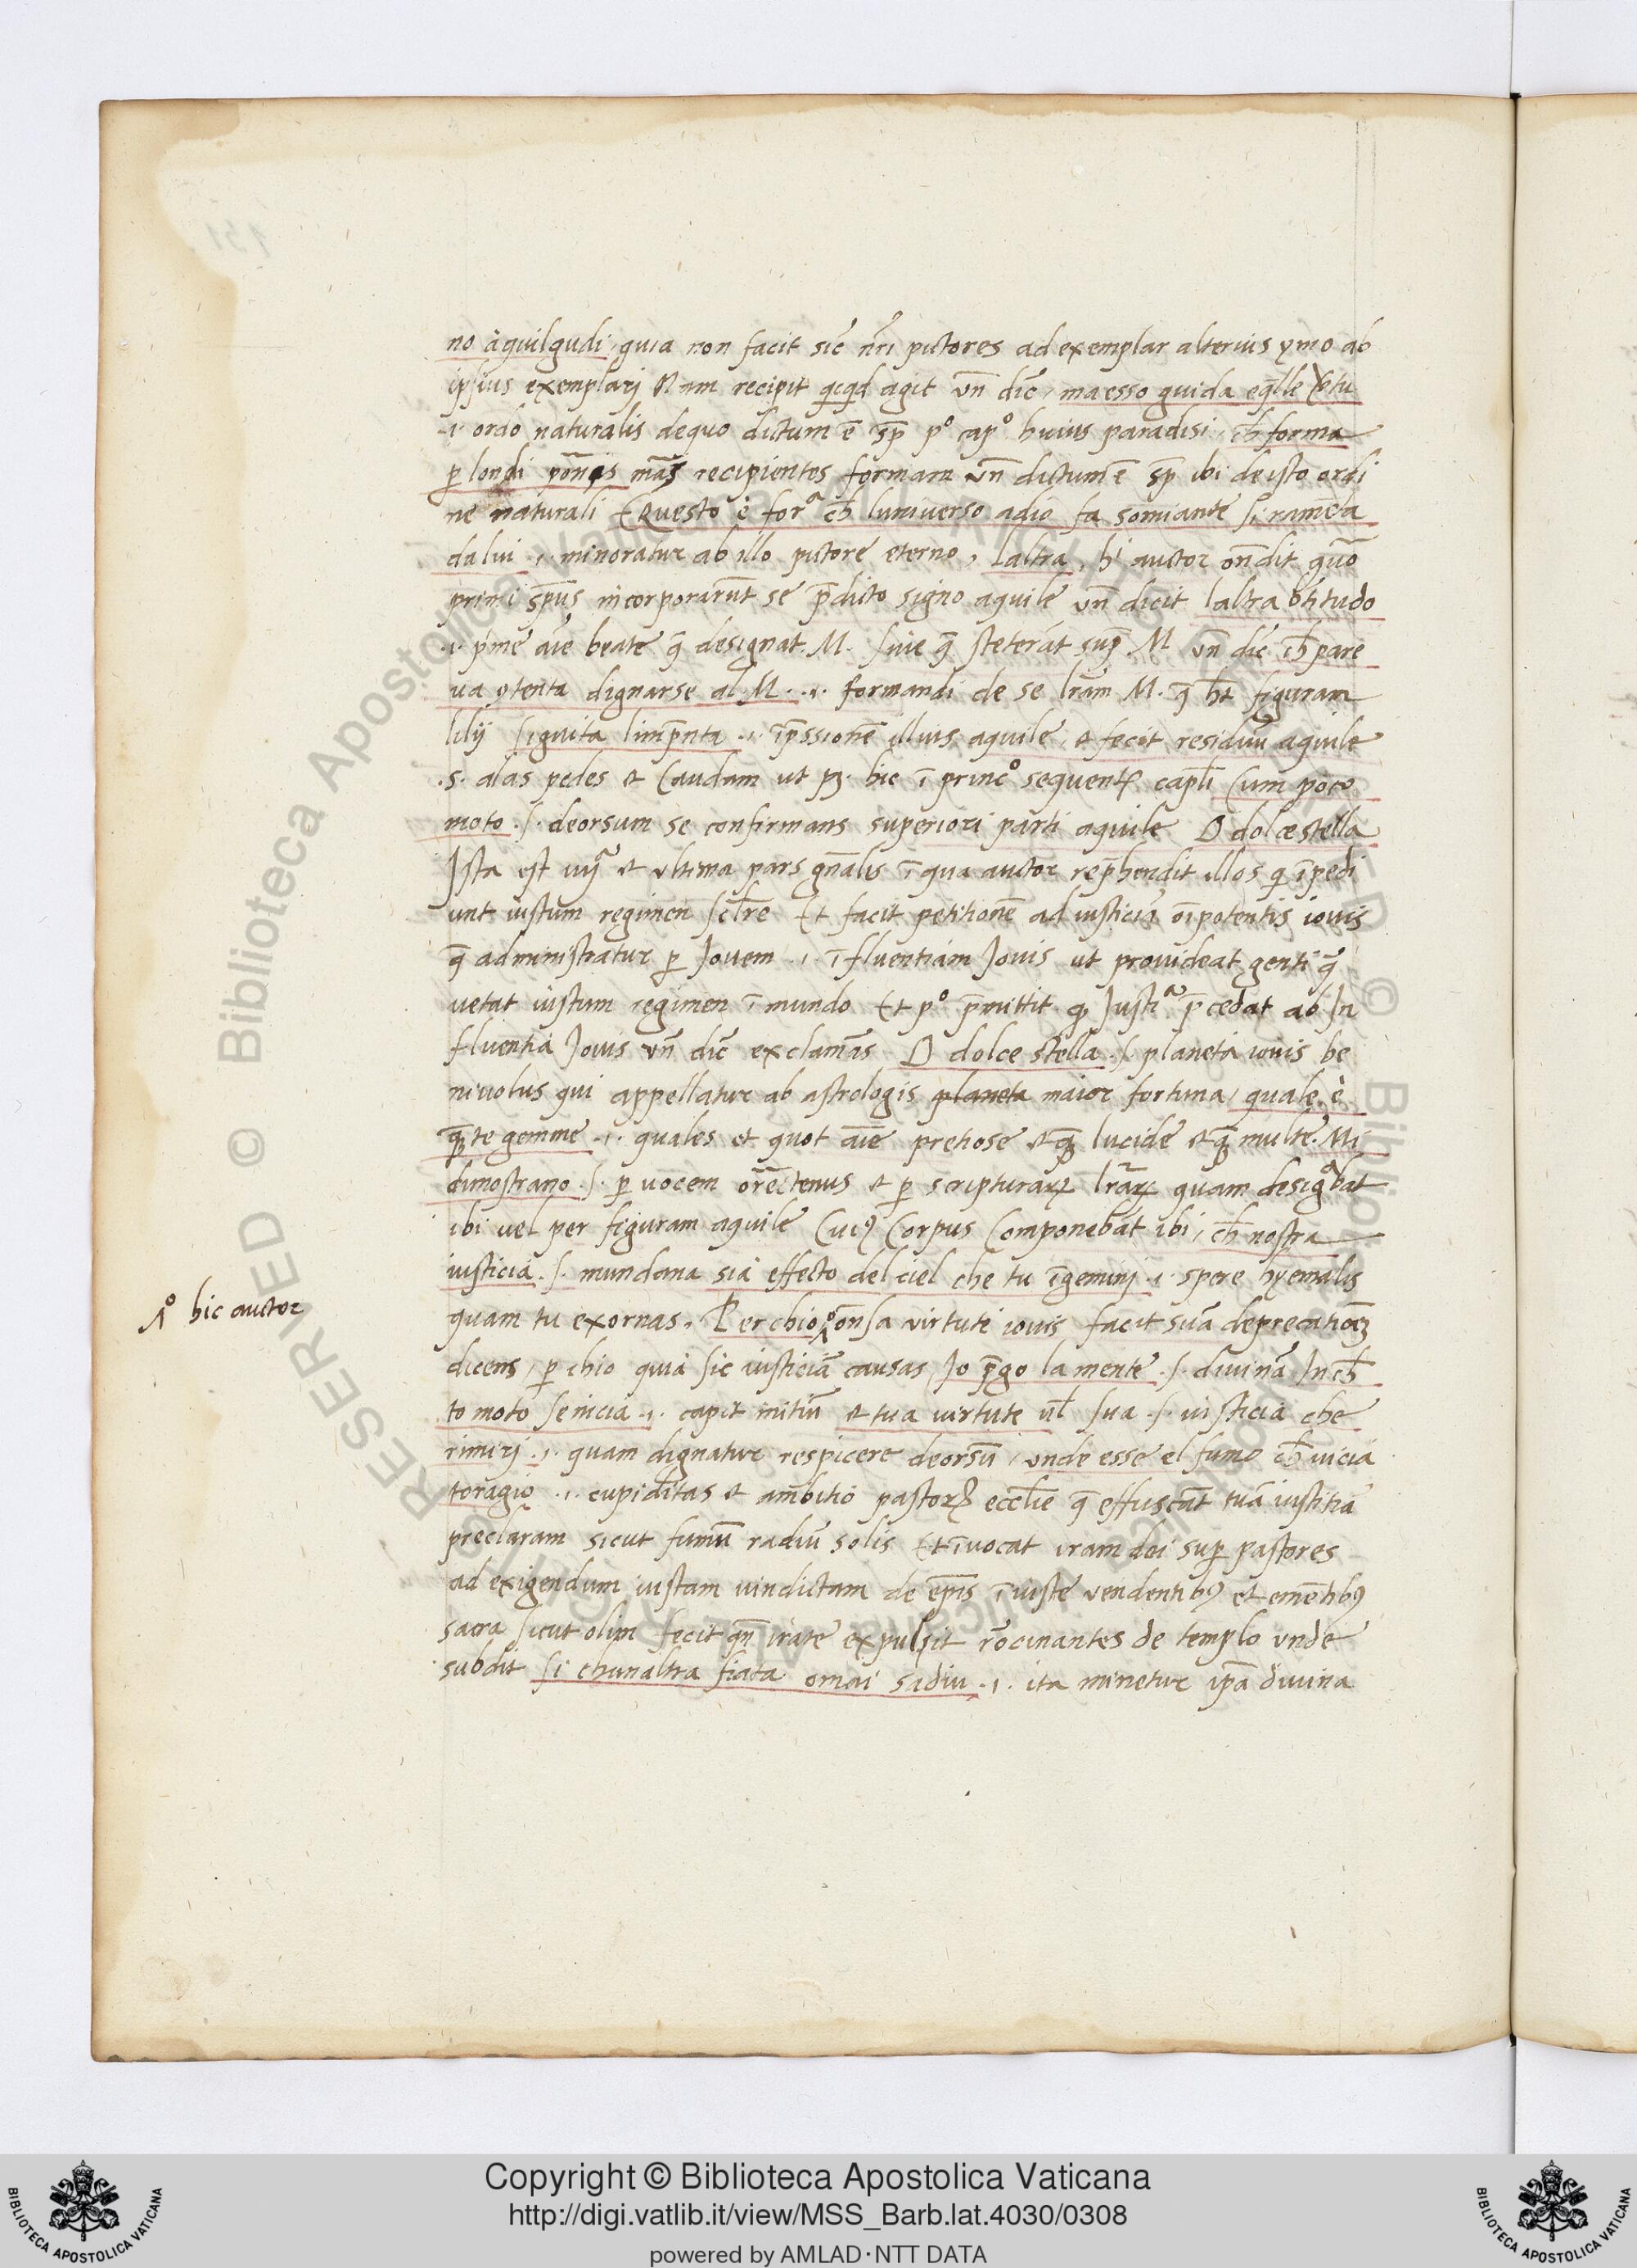 no aquilgudi, quia non facit sic̄ nr̄i pictores ad exemplar alterius ymo ab
ipsius exemplarj nam recipit qicq̇d agit vn̄ dic̄, ma esso guida eq̄lle
.i. ordo naturalis dequo dictum ē sp̄ pº capº huius paradisi, ch̄ forma
p̱ londi recipientes formam vn̄ dictum ē sp̄ ibi de isto ordi
ne naturali Et Questo è forª ch̄ luniuerso adio fa somiante
dalui .i. minoratur ab illo pictore eterno, laltra, auctor on̄dit quō
primi sp̄us incorporarūt se p̄dicto signo aquile vn̄ dicit laltra btītudo
.i. p̄me aīe beate q̄ designāt .M. siue q̄ steterāt sup̱ M vn̄ dic̄ ch̄ pare
ua 9tenta dignarse al .M. .i. formandi de se lr̄am M. q̄ ht̄ figuram
lilij siguita limp̄nta .i. īp̄ssionē illius aquile, et fecit residuū aquile
.s. alas pedes et Caudam ut pꝫ. hic ī princº sequentꝭ capl̄i Cum poco
moto .s. deorsum se confirmans superiori parti aquile O dolce stella
Ista est et vltima pars gn̄alis ī qua auctor rep̄hendit illos q̇ īpedi
unt iustum regimen Et facit petitionē ad iusticiā oīpotentis iouis
q̄ administratur p̱ Jouem .i. īfluentiam Jouis ut prouideat genti q̄
uetat iustum regimen ī mundo Et pº p̄mittit ꝙ Justiª p̱cedat ab In
fluentia Jouis vn̄ dic̄ exclamās O dolce stella .s. planeta iouis be
niuolus qui appellatur ab astrologis planeta maior fortuna, quale è
te gemme .i. quales et quot aīe pretiose et lucide et multe. Mi
dimostrano .s. p̱ uocem oretenus et p̱ scripturaꝝ lr̄aꝝ quam desigªbat
ibi vel per figuram aquile Corpus Componebāt ibi, ch̄ nostra
iusticia .s. mundana sia effecto del ciel che tu īgeminj .i. spere hyemalis
quam tu exornas. Perchio virtute iouis facit suā deprecationē
º hic auctor
dicens, p̱ chio quia sic iusticiā causas, Jo p̄go la mente .s. diuinā In ch̄
to moto se nicia .i. capit initiū et tua uirtute ul̄ sua .s. iusticia che
rimirj .i. quam dignatur respicere deorsū, unde esse el fumo ch̄ uicia
toragio .i. cupiditas et ambitio pastorꝝ eccl̄ie q̄ effuscāt tuā iustitiā
preclaram sicut fumū radiū solis Et īuocat iram dei sup̱ pastores
ad exigendum iustam uindictam de ep̄is īiuste vendentibꝰ et emētibꝰ
sacra sicut olim fecit qn̄ irate expulsit rōcinantes de templo vnde
subdit si chunaltra fiata omai sadiu .i. ita minetur ip̄a diuina
151
RESERVED © Biblioteca Apostolica Vaticana
Copyright © Biblioteca Apostolica Vaticana
http://digi.vatlib.it/view/MSS_Barb.lat.4030/0308
powered by AMLAD·NTT DATA
BIBLIOTECA APOSTOLICA VATICANA
BIBLIOTECA APOSTOLICA VATICANA